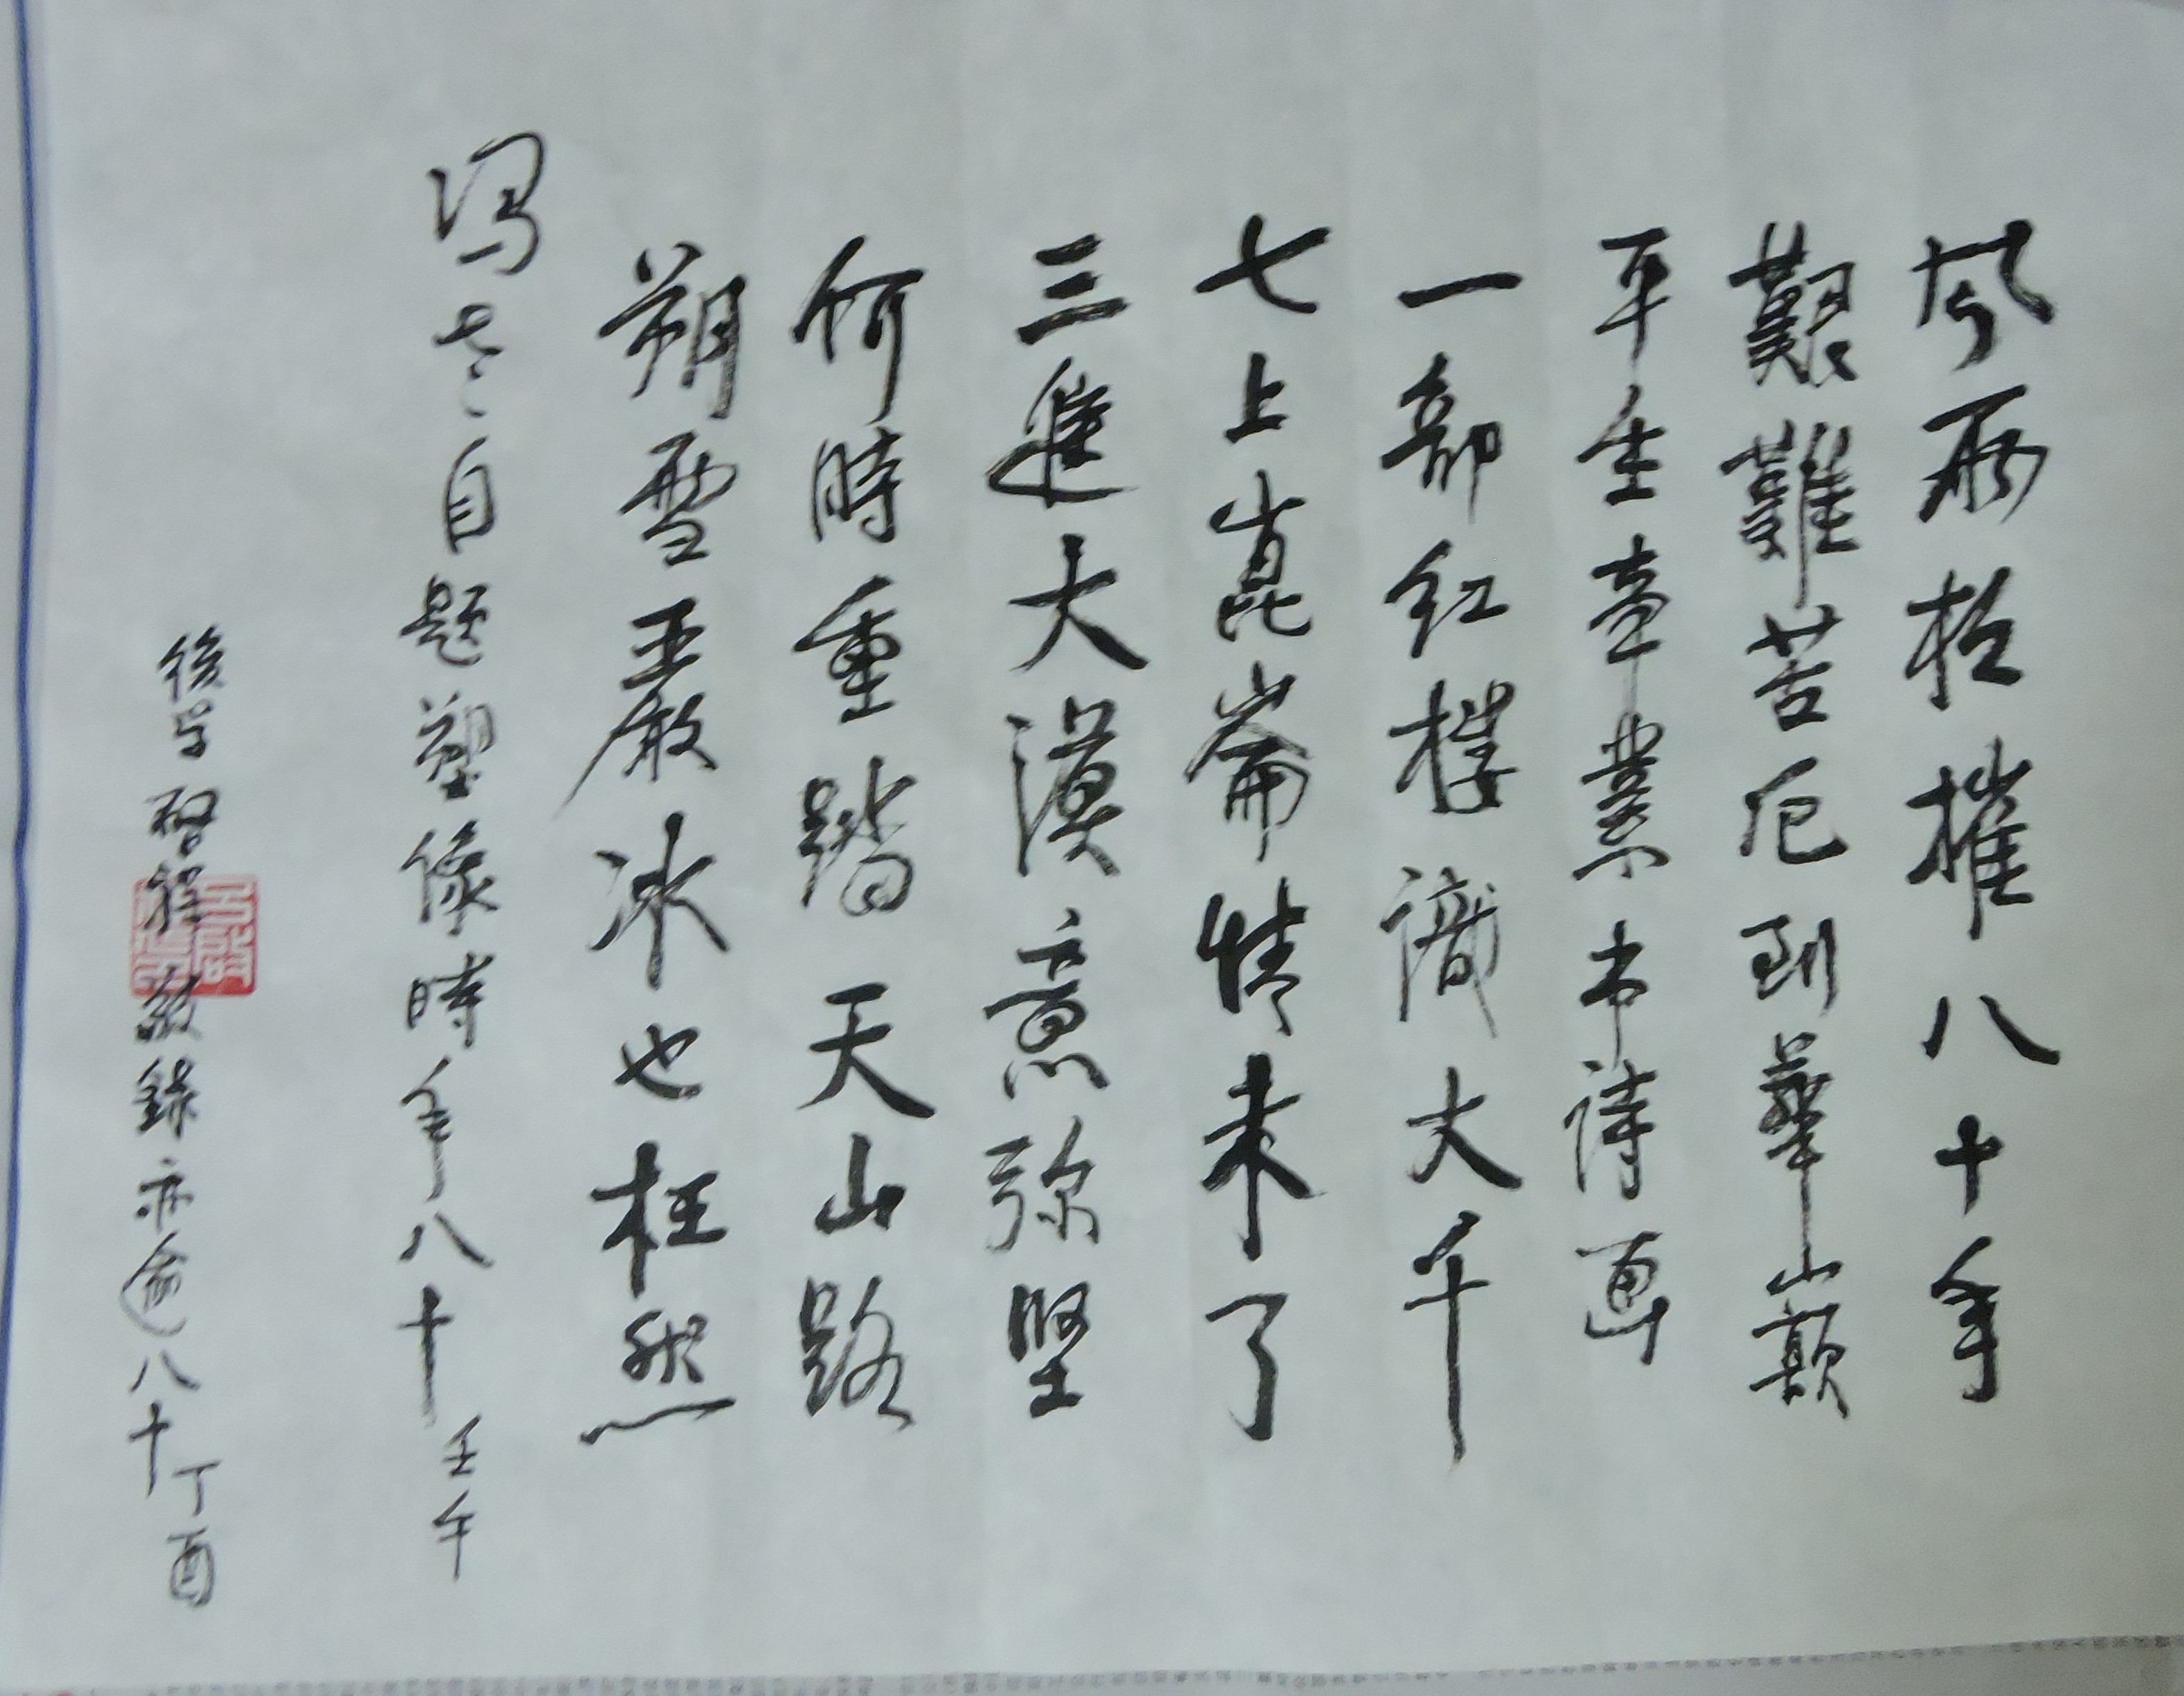 風雨相摧八十年
艱難苦厄到華山巔
平生事業書詩畫
一部红樓識大千
七上崑崙情未了
三進大漠意弥坚
何時重踏天山路
朔雪嚴冰也枉然
冯老自題塑像時年八十 壬午
後学啓程敬錄亦逾八十 丁酉